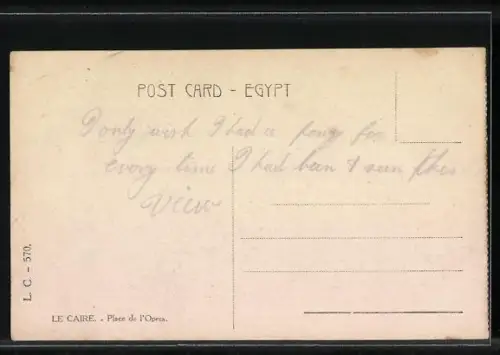 POST CARD - EGYPT
I only wish I had a pony for
every time I had been & seen this
view
L. C. - 570.
LE CAIRE. - Place de l'Opera.